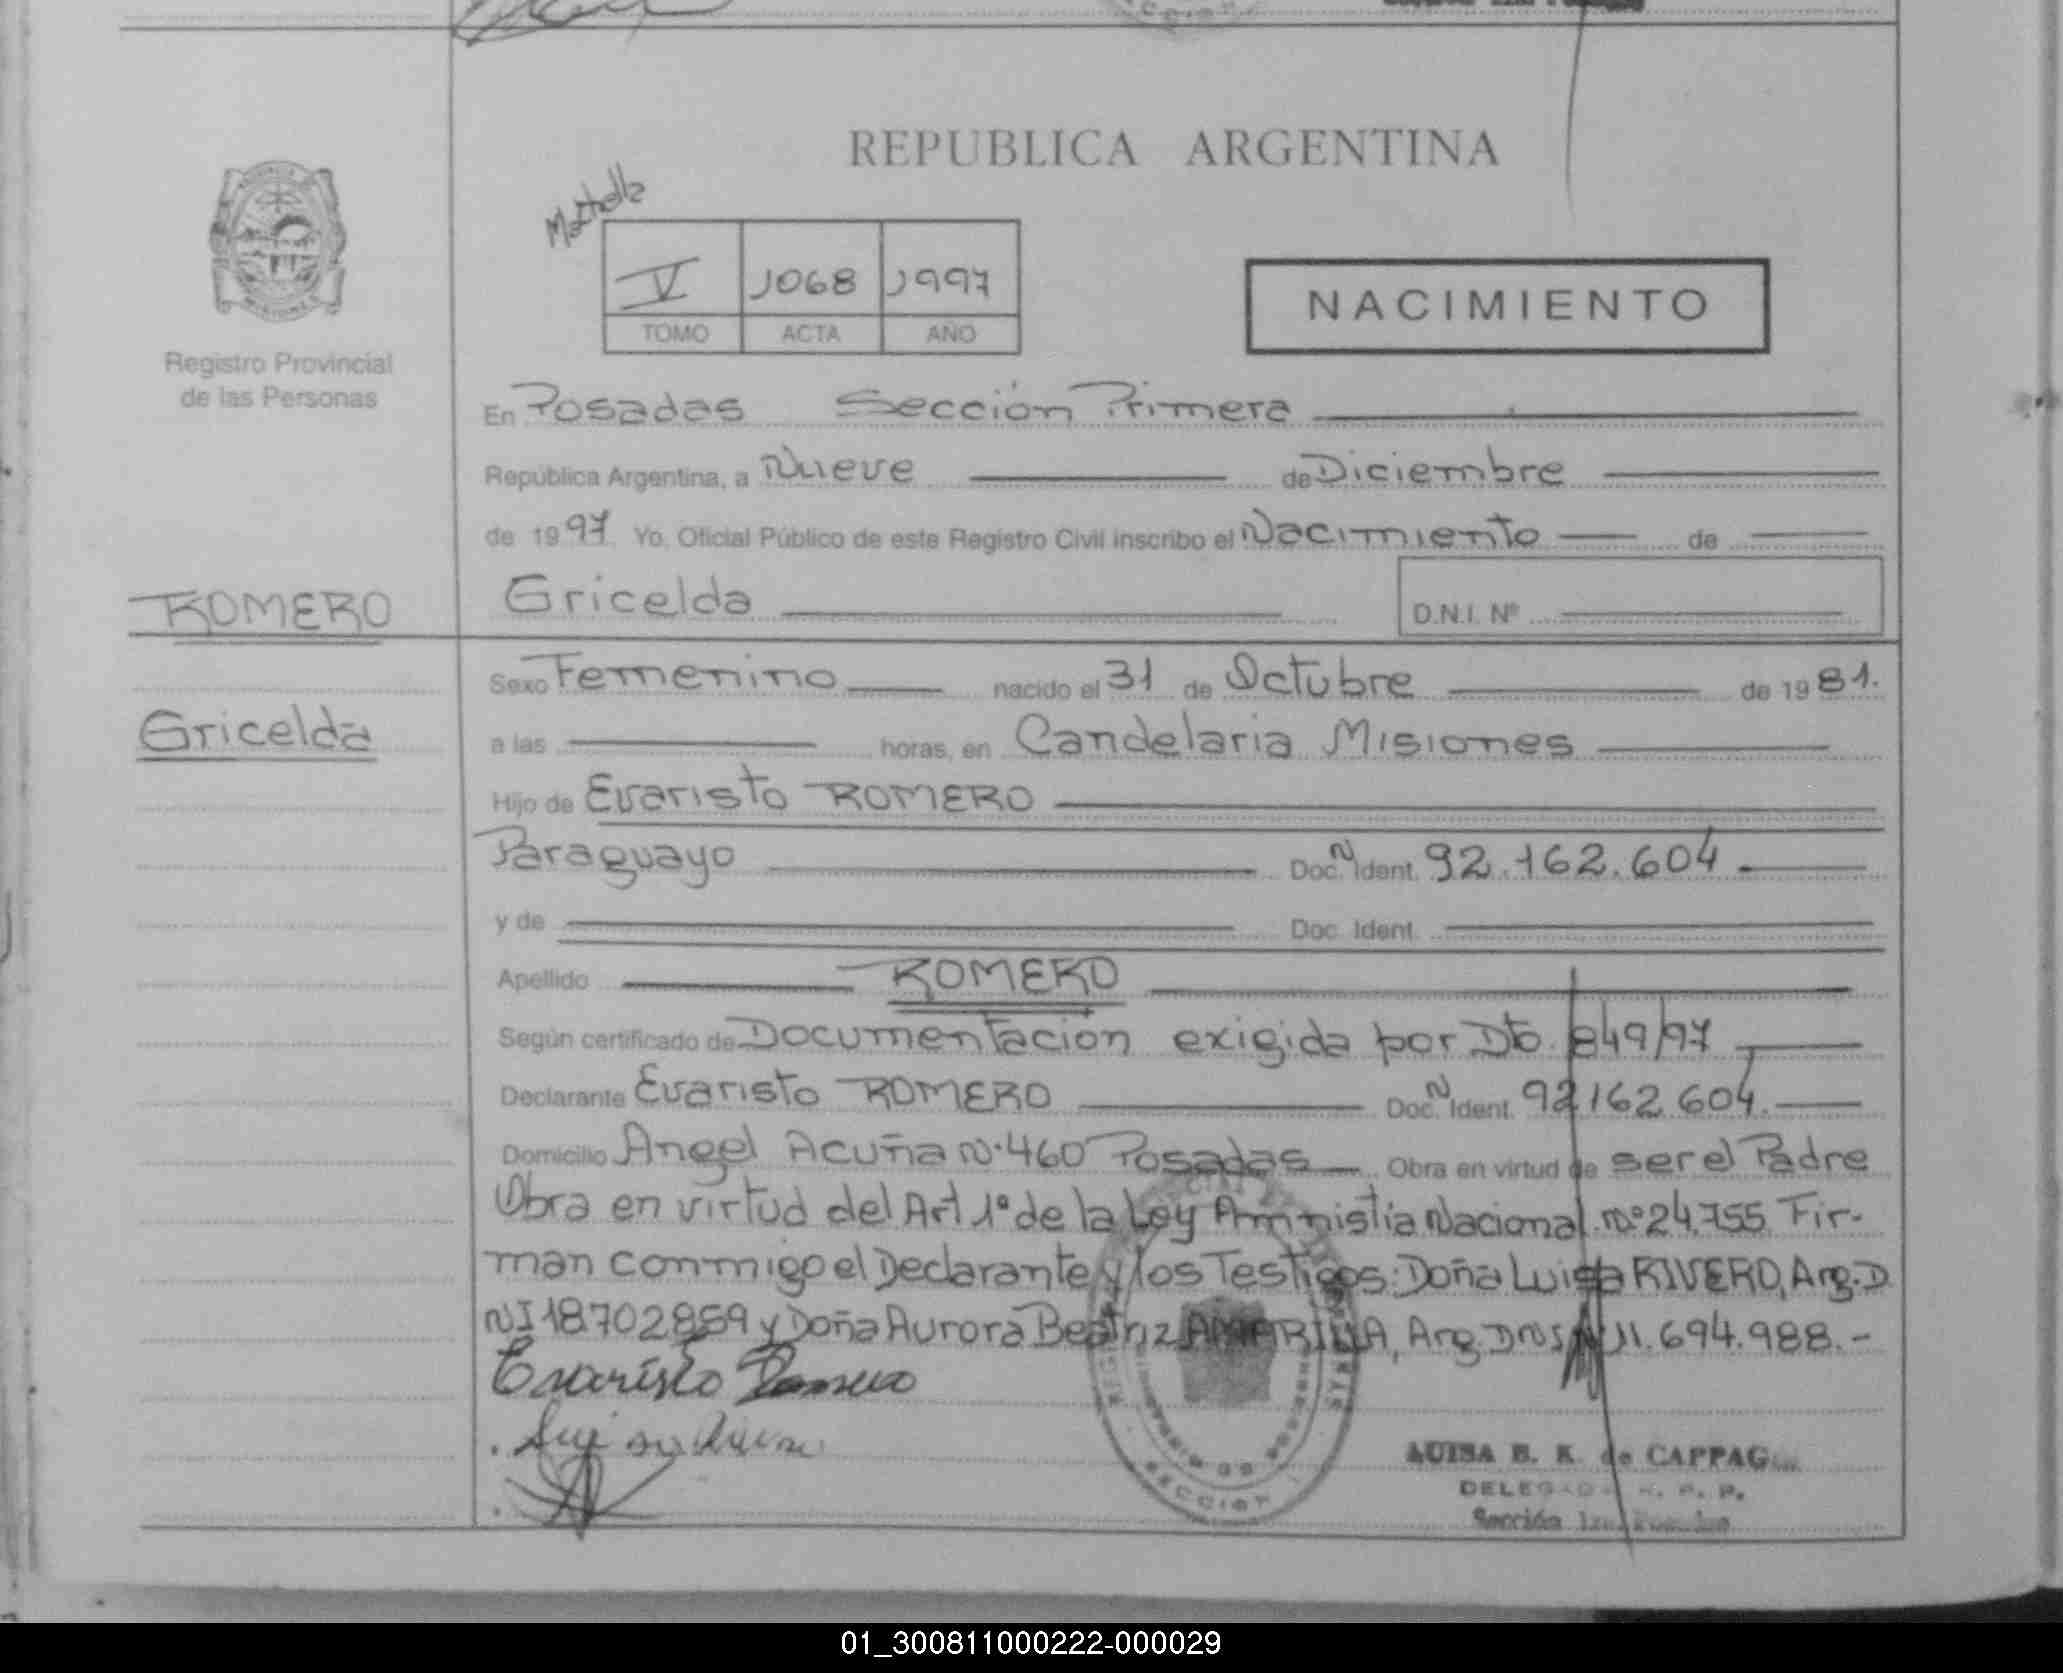 REPUBLICA ARGENTINA
V 1068 1997
TOMO ACTA AÑO
NACIMIENTO
Registro Provincial
de las Personas
En Posadas Sección Primera
República Argentina, a Nueve de Diciembre
de 1997 Yo. Oficial Público de este Registro Civil inscribo el Nacimiento de
ROMERO
Gricelda
D.N.I. Nº
Sexo Femenino nacido el 31 de Octubre de 1981.
Gricelda
a las horas, en Candelaria Misiones
Hijo de Evaristo ROMERO
Paraguayo Doc. N Ident. 92.162.604
y de Doc. Ident.
Apellido ROMERO
Según certificado de Documentación exigida por Dto. 849/97
Declarante Evaristo ROMERO Doc. N Ident. 92162604.
Domicilio Angel Acuña N·460 Posadas Obra en virtud de ser el Padre
Obra en virtud del Art 1º de la Ley Amnistia Nacional nº 24.755. Fir-
man conmigo el Declarante y los Testigos: Doña Luisa RIVERO, Arg. D
NI 18702859 y Doña Aurora Beatriz AMARILLA, Arg. DNI N 11.694.988.-
Evaristo Romero
LUISA B. K. de CAPPAG
DELEGADA R. P. P.
Sección 1ra.
SECCION
01_300811000222-000029